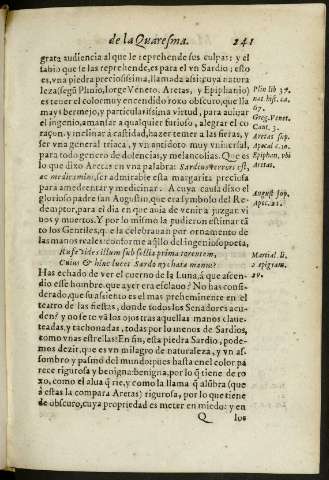 de la Quaresma. 241
grata audiencia al que le reprehende sus culpas: y el
sabio que se las reprehende, es para el vn Sardio: esto
es, vna piedra preciosissima, llamada assi: cuya natura
leza (segũ Plinio, Iorge Veneto, Aretas, y Epiphanio)
es tener el color muy encendido roxo obscuro, que lla
ma ys bermejo, y particularissima virtud, para auiuar
el ingenio, amansar a qualquier furioso, alegrar el co
raçon, y inclinar à castidad, hazer temer a las fieras, y
ser vna general triaca, y vn antidoto muy vniuersal,
para todo genero de dolencias, y melancolias. Que es
lo que dixo Aretas en vna palabra: Sardius terrori est,
ac medicamini, ser admirable esta margarita preciosa
para amedrentar y medicinar. A cuya causa dixo el
glorioso padre san Augustin, que era symbolo del Re-
demptor, para el dia en que auia de venir a juzgar vi
nos y muertos. Y por lo mismo la pudieron estimar tã
to los Gentiles, que la celebrauan por ornamento de
las manos reales: conforme a õllo del ingenioso poeta,
vides illum sub sellis prima
Cuius & hinc lucet Sardonychata manus?
Has echado de ver el cuerno de la Luna, à que ascen-
dio esse hombre, que ayer era esclauo? No has consi-
derado, que su assiento es el mas preheminente en el
teatro de las fiestas, donde todos los Senadores acu-
den? y no se te vã los ojos tras aquellas manos claue-
teadas, y tachonadas, todas por lo menos de Sardios,
como vnas estrellas? En fin, esta piedra Sardio, pode-
mos dezir, que es vn milagro de naturaleza, y vn as-
sombro y pasmo del mundo: pues hasta en el color pa
rece rigurosa y benigna: benigna, por lo q̃ tiene de ro
xo, como el alua q̃ rie, y como la llama q̃ alũbra (que
à estas la compara Aretas) rigurosa, por lo que tiene
de obscuro, cuya propriedad es meter en miedo: y en
Q los
Plin lib 37.
nat hist. ca.
67.
Greg. Venet.
Cant. 3.
Aretas sup.
Apocal c.10.
Epiphan. vbi
Aretas.
August sup.
Apoc. 21.
Martial li.
2 epigram.
29.